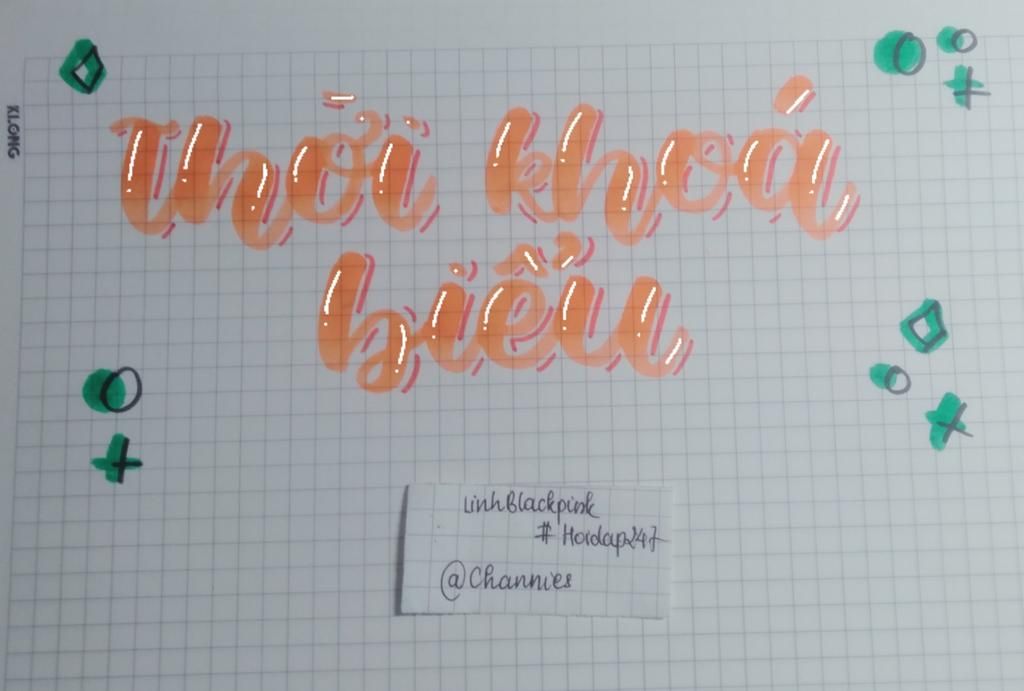 KLONG
Thời khoá
biểu
LinhBlackpink
# Hoidap247
@Channies